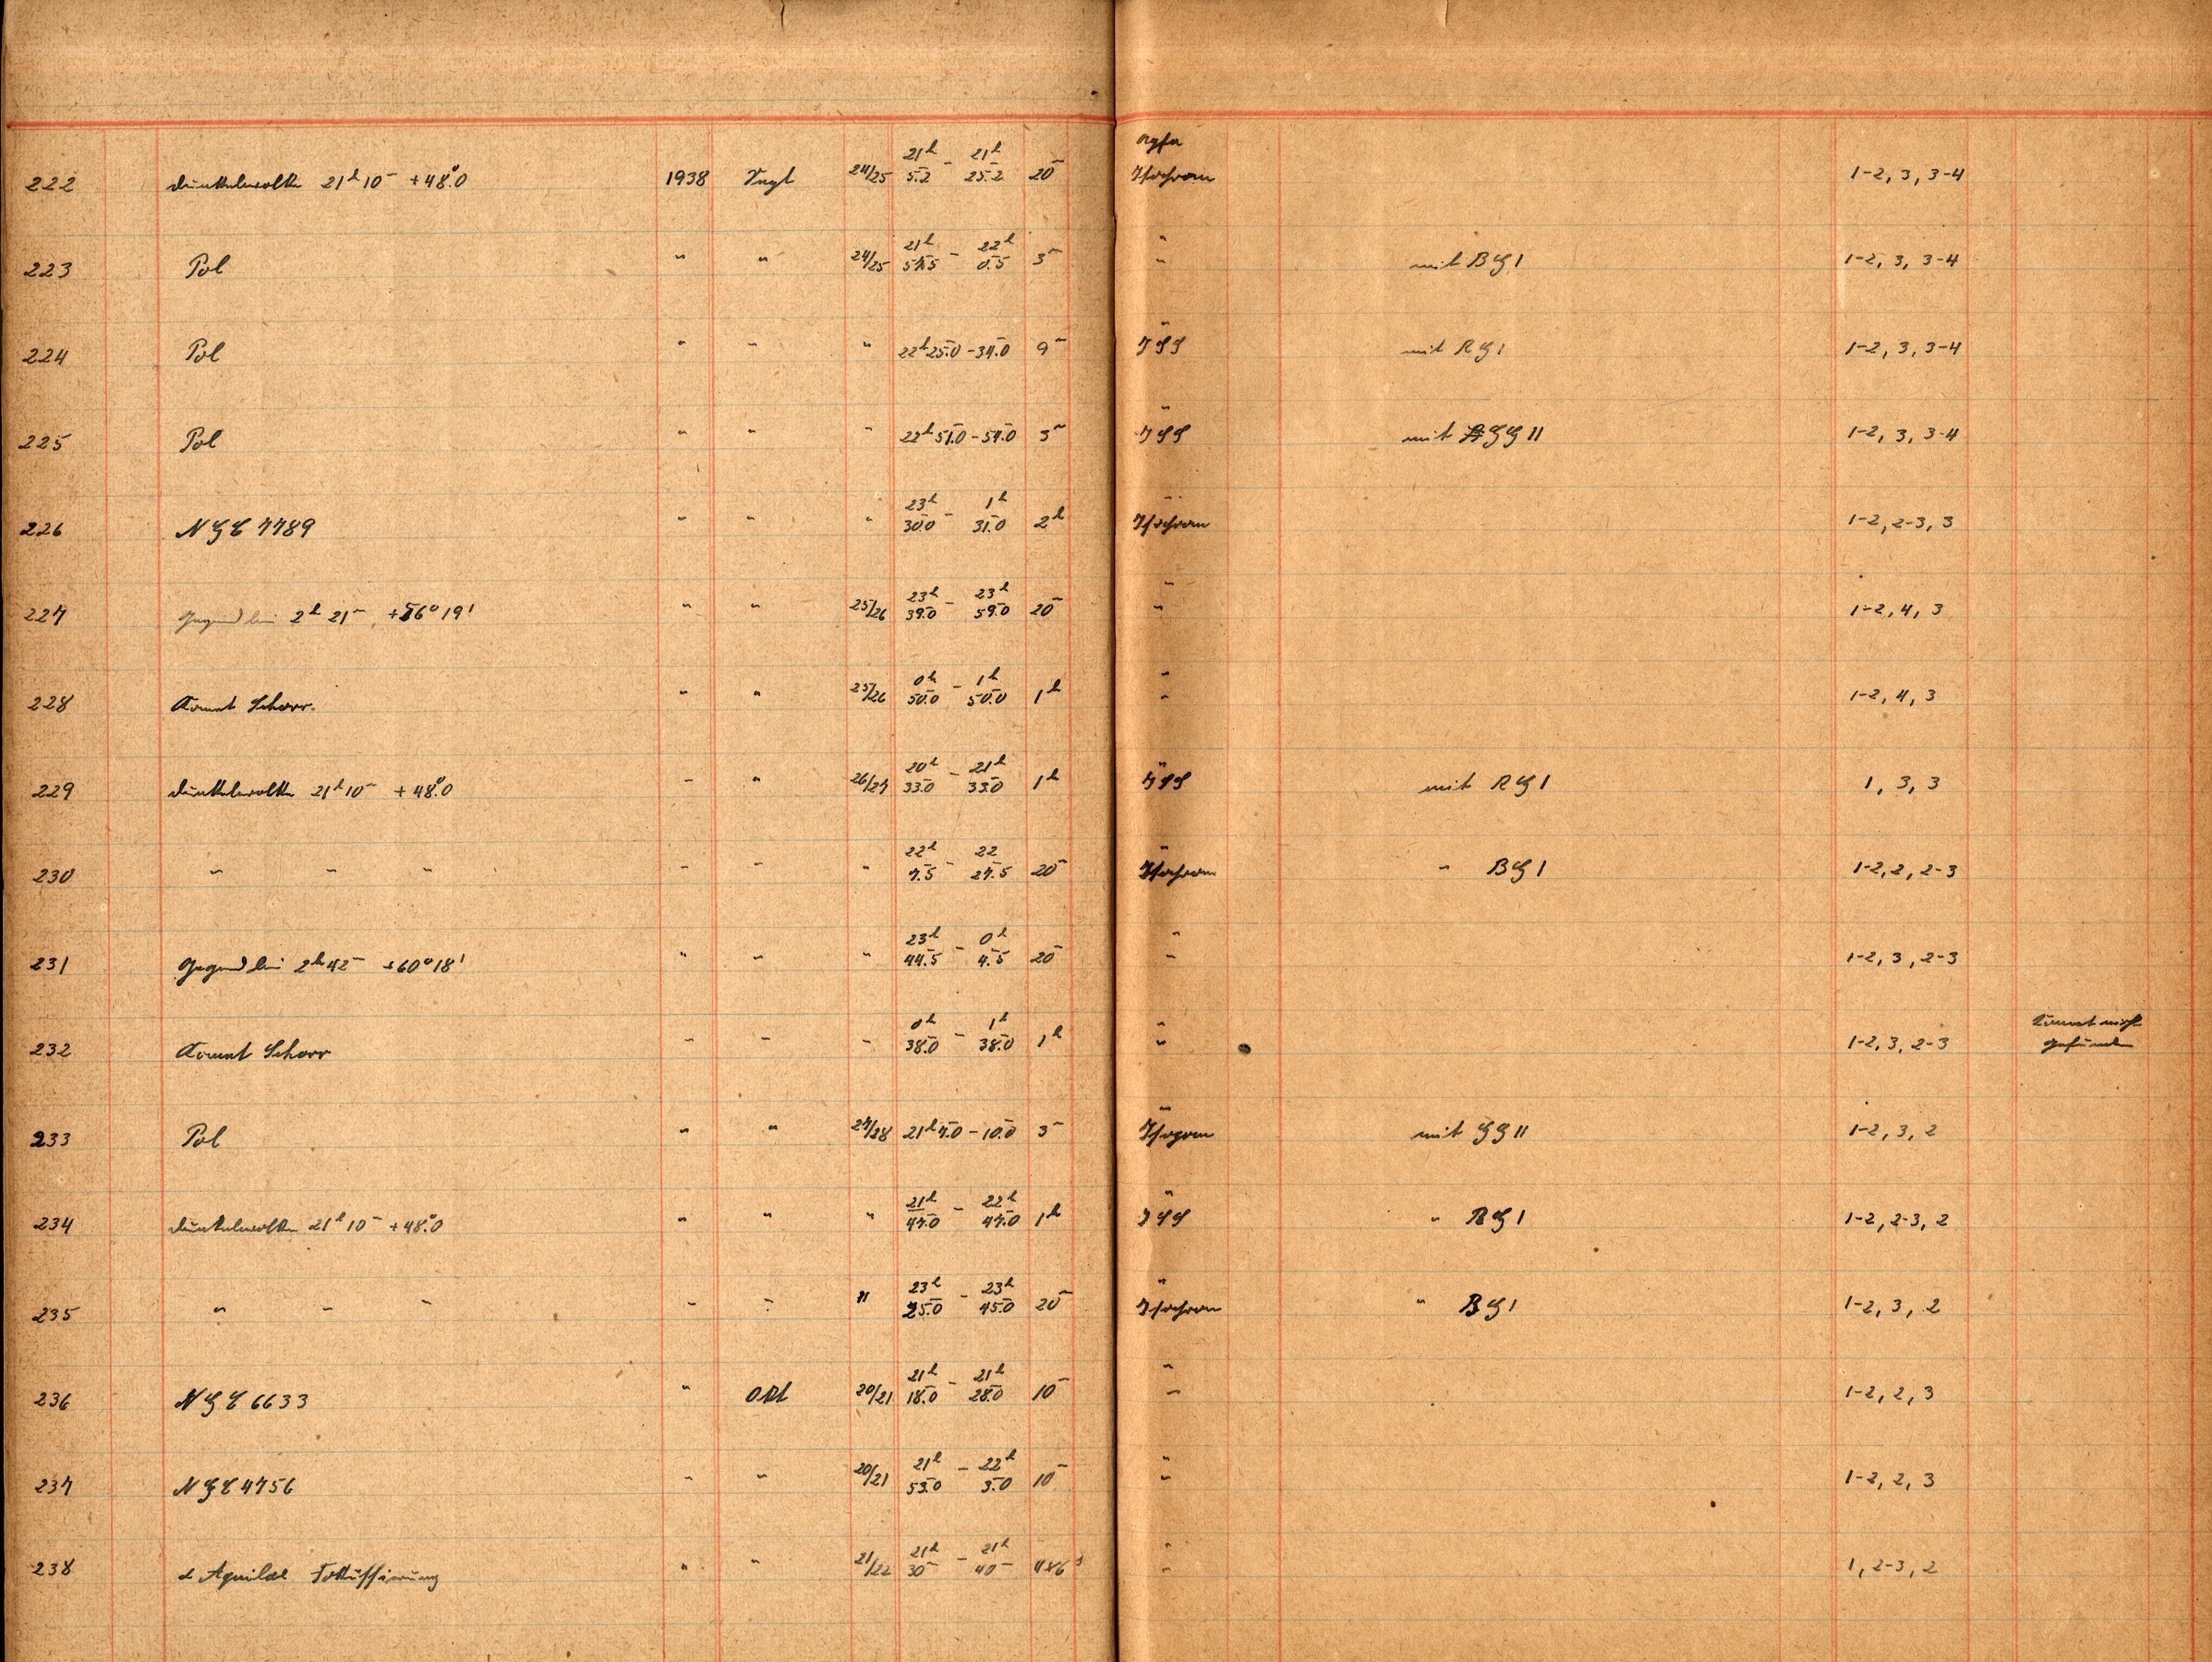 Agfa
222 Dunkelwolke 21h 10m +48°.0 1938 Sept 24/25 21h 5m.2 – 21h 25m.2 20m Isochrom 1-2, 3, 3-4
223 Pol " " 24/25 – 22h 0m.5 3m " " mit BG 1 1-2, 3, 3-4
224 Pol " " " 22h 25m.0 – 34m.0 9m " ISS mit RG 1 1-2, 3, 3-4
225 Pol " " " 22h 51m.0 – 54m.0 3m " ISS mit GG 11 1-2, 3, 3-4
226 NGC 7789 " " " 23h 30m.0 – 1h 31m.0 2h " Isochrom 1-2, 2-3, 3
227 Gegend bei 2h 21m, +56° 19' " " 25/26 23h 39m.0 – 23h 59m.0 20m " " 1-2, 4, 3
228 Komet Schorr. " " 25/26 0h 50m.0 – 1h 50m.0 1h " " 1-2, 4, 3
229 Dunkelwolke 21h 10m +48°.0 " " 26/27 20h 33m.0 – 21h 33m.0 1h " ISS mit RG 1 1, 3, 3
230 " " " " " " 22h 7m.5 – 22 27m.5 20m " Isochrom " BG 1 1-2, 2, 2-3
231 Gegend bei 2h 42m +60° 18' " " " 23h 44m.5 – 0h 4m.5 20m " " 1-2, 3, 2-3
232 Komet Schorr " " " 0h 38m.0 – 1h 38m.0 1h " " 1-2, 3, 2-3 Komet nicht
gefunden
233 Pol " " 27/28 21h 7m.0 – 10m.0 3m " Isoprom mit GG 11 1-2, 3, 2
234 Dunkelwolke 21h 10m +48°.0 " " " 21h 47m.0 – 22h 47m.0 1h " ISS " RG 1 1-2, 2-3, 2
235 " " " " " " 23h 25m.0 – 23h 45m.0 20m " Isochrom " BG 1 1-2, 3, 2
236 NGC 6633 " Okt 20/21 21h 18m.0 – 21h 28m.0 10m " " 1-2, 2, 3
237 NGC 4756 " " 20/21 21h 53m.0 – 22h 3m.0 10m " " 1-2, 2, 3
238 α Aquilae Fokussierung " " 21/22 21h 30m – 21h 40m " " 1, 2-3, 2